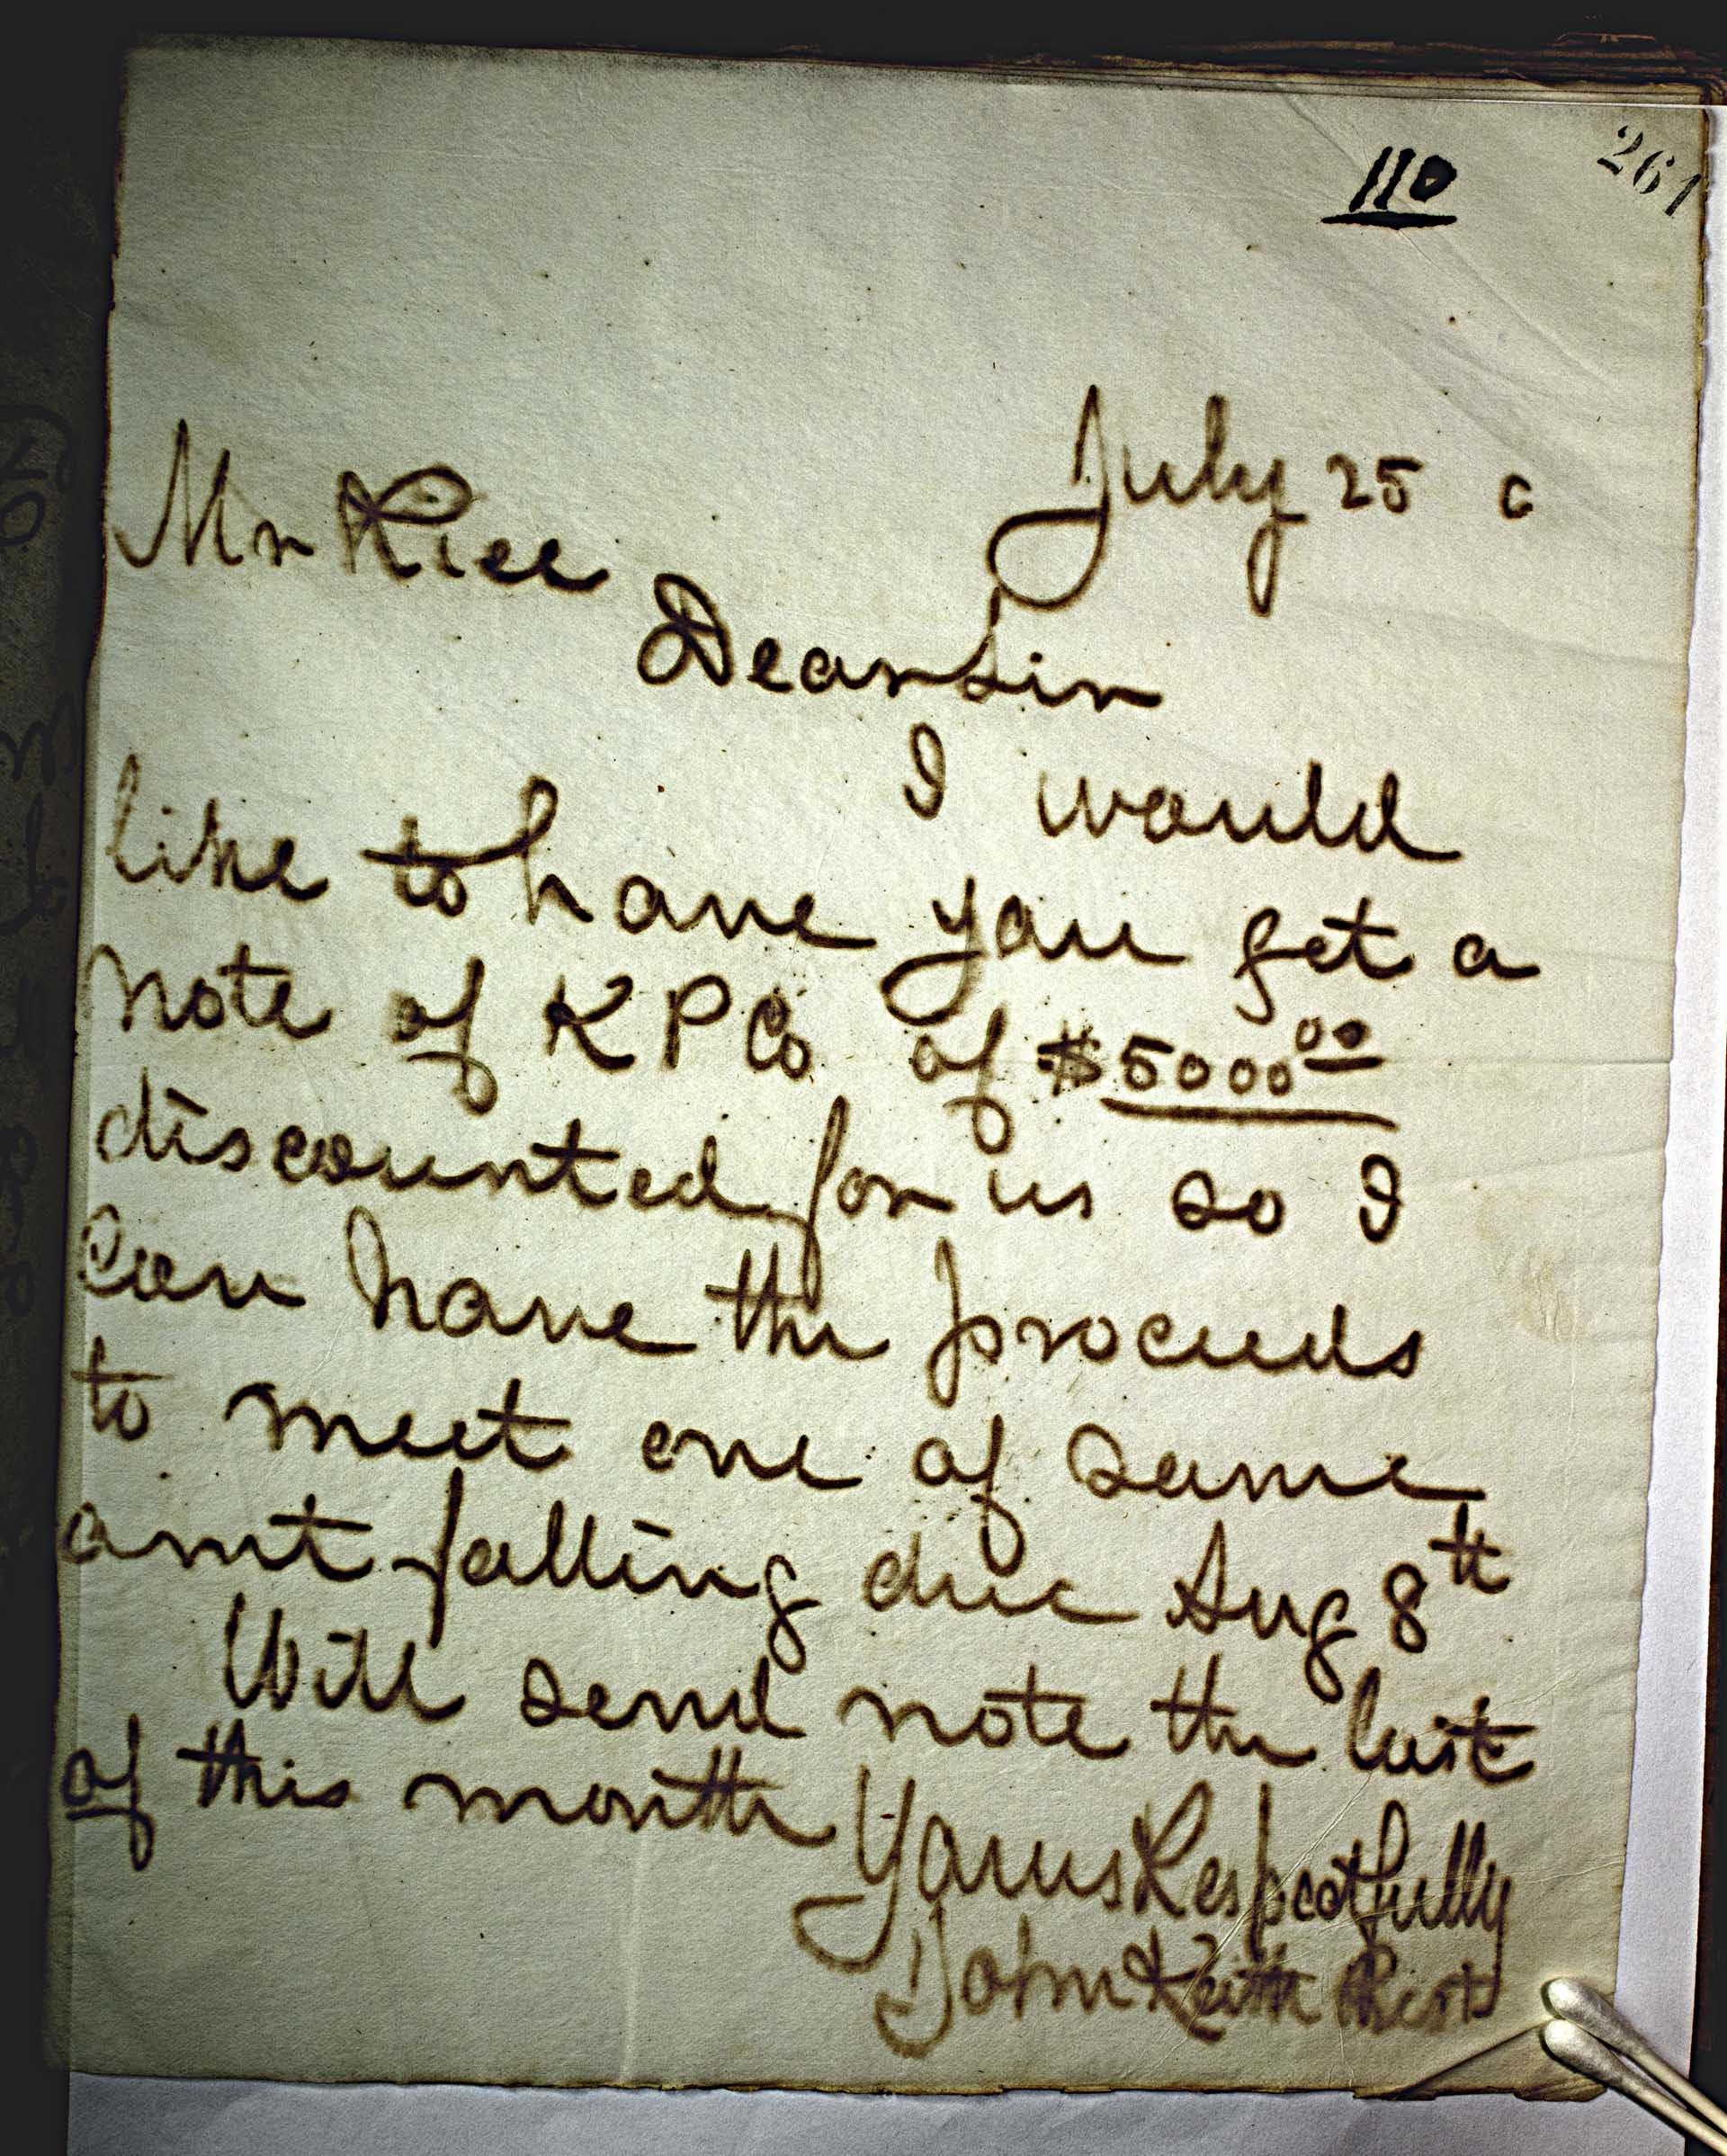 261
110
July 25
Mr Rice
Dear Sir
I would
like to have you get a
note of K P Co of $5000 00
discounted for us so I
Can have the proceeds
to meet one of same
amt falling due Aug 8th
Will send note the last
of this month
Yours Respectfully
John Keith Prest